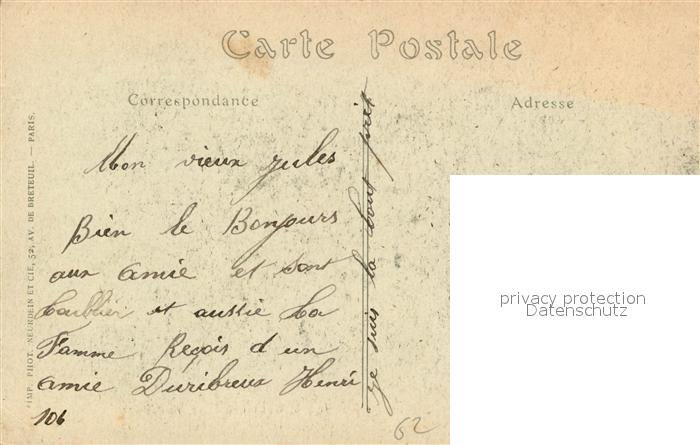 Carte Postale
Correspondance
Adresse
Mon vieux Jules
Bien le Bonjours
aux amie et sont
oublier et aussie La
Famme Reçois d un
amie Duribreux Henri
106
je suis la tout prêt
IMP. PHOT. NEURDEIN ET CIE, 52, AV. DE BRETEUIL. — PARIS.
62
privacy protection
Datenschutz